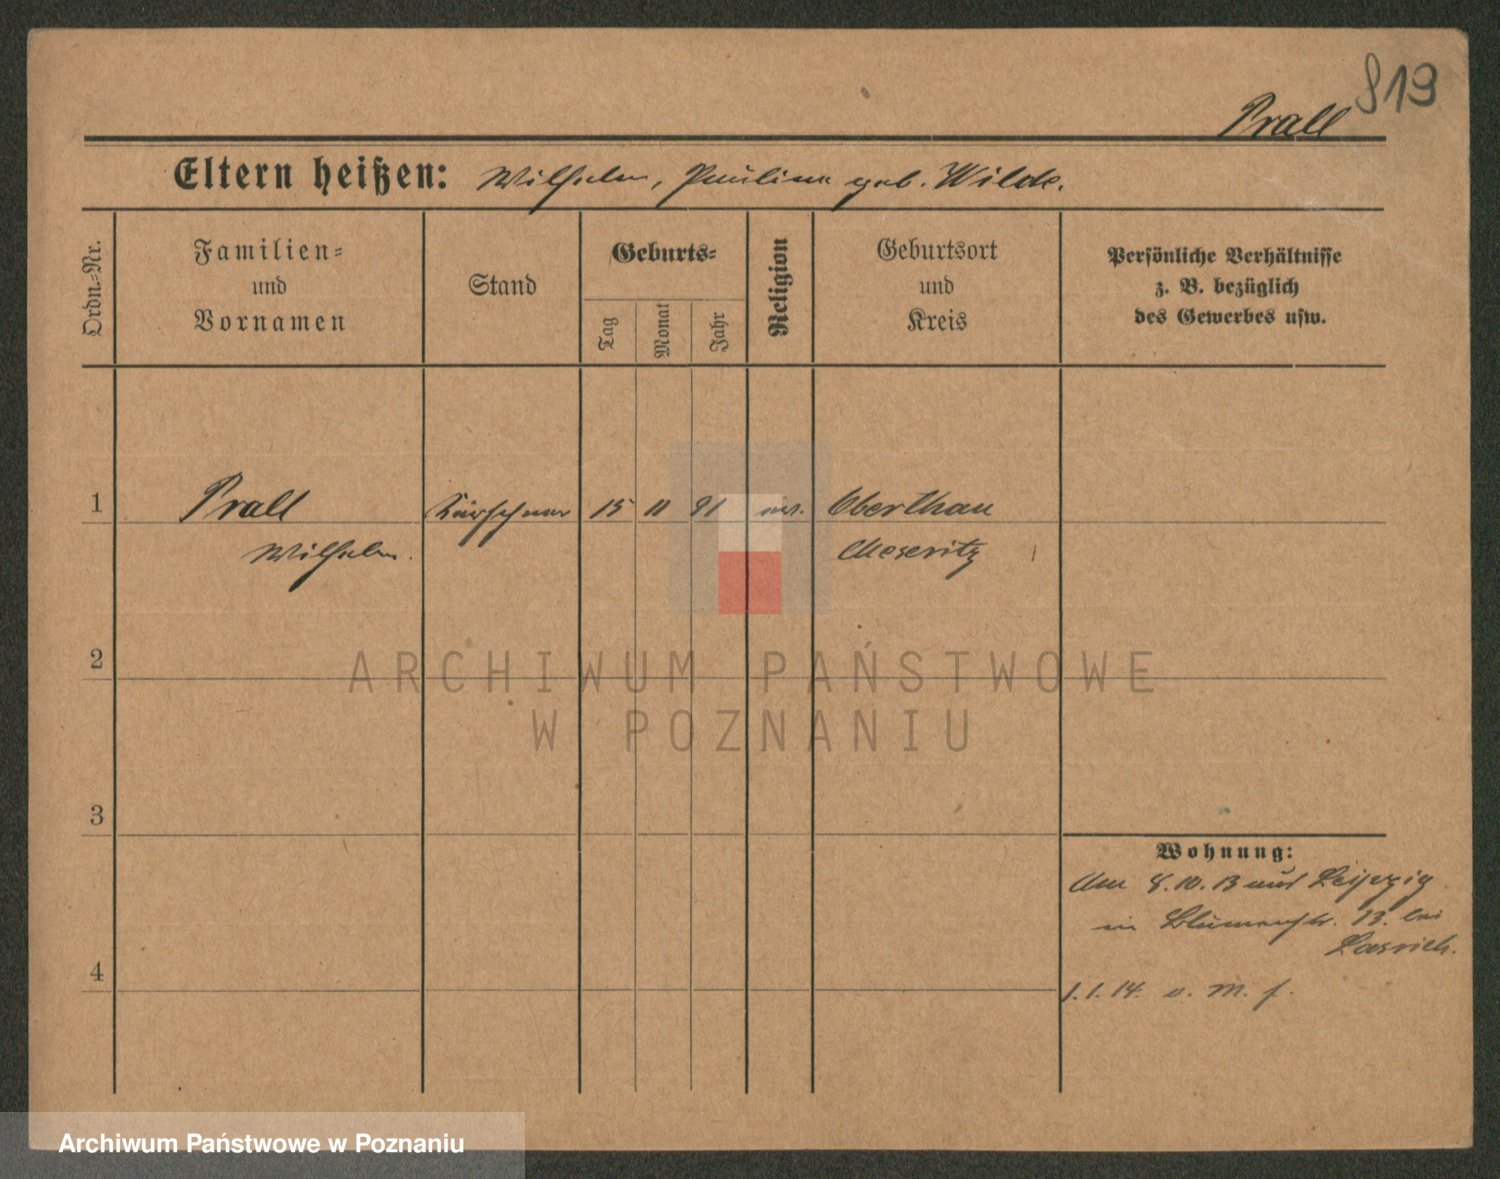 819
Prall
Eltern heißen: Wilhelm, Pauline geb. Wilde.
Ordn.-Nr.
Familien- und Vornamen
Stand
Geburts-
Tag
Monat
Jahr
Religion
Geburtsort und Kreis
Persönliche Verhältnisse
z. B. bezüglich
des Gewerbes usw.
1 Prall Kürschner 15 11 91 ev. Oberthau
Wilhelm. Meseritz
2
ARCHIWUM PAŃSTWOWE
W POZNANIU
3
Wohnung:
Am 8.10.13 aus Leipzig
in Blumenstr. 13. bei
4
1.1.14. v. M. f.
Archiwum Państwowe w Poznaniu